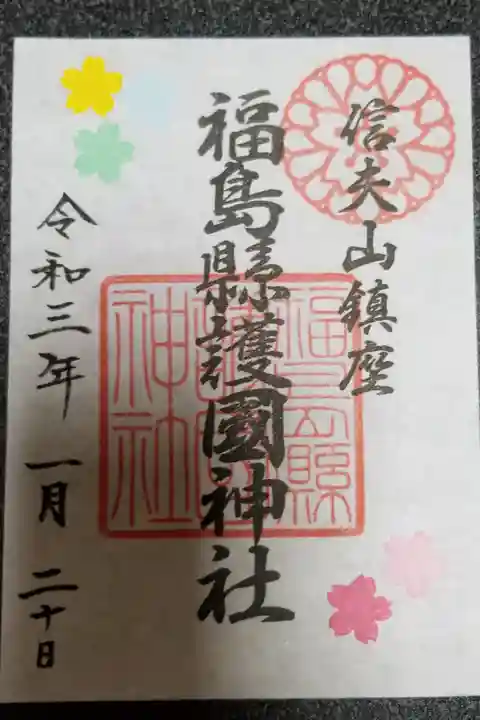 信夫山鎮座
福島縣護國神社
福島縣護國神社
令和三年一月二十日